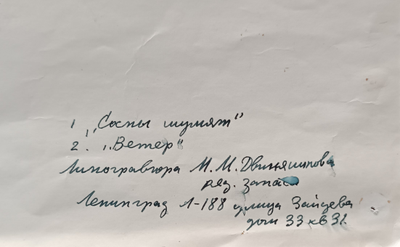 1 „Сосны шумят"
2. „Ветер"
Линогравюра М. М. Двиняшнова
рез. запаса
Ленинград Л-188 улица Зайцева
дом 33 кв 32